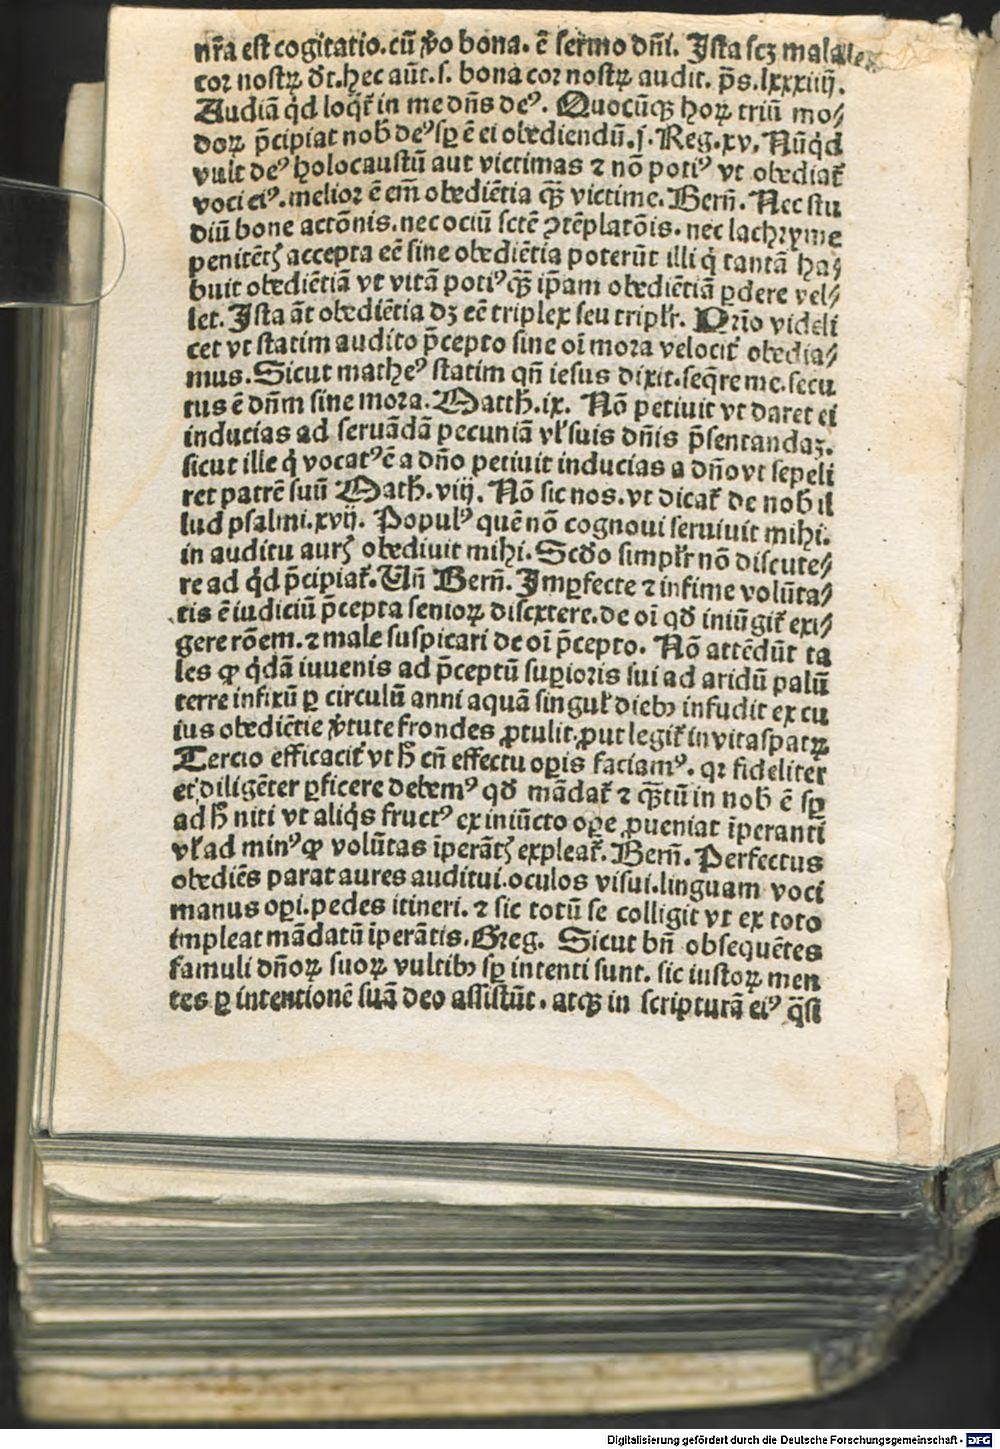 nr̃a est cogitatio. cũ ṽo bona. ẽ sermo dñi. Ista scꝫ mala
cor nostꝝ d̃t. hec aũt. s. bona cor nostꝝ audit. p̃s. lxxxiiij.
Audiã q̇d loqr̃ in me dñs deꝰ. Quocũqꝫ hoꝝ triũ mo⸗
doꝝ p̃cipiat nob̃ deꝰ sꝑ ẽ ei obediendũ. j. Reg. xv. Nũq̇d
vult deꝰ holocaustũ aut victimas ⁊ nõ potiꝰ vt obediat̃
voci eiꝰ. melior ẽ em̃ obediẽtia qꝫ̃ victime. Bern̄. Nec stu
diũ bone actõnis. nec ociũ sctẽ ꝯtẽplatõis. nec lachryme
penitẽtꝭ accepta eẽ sine obediẽtia poterũt illi q̇ tantã ha⸗
buit obediẽtiã vt vitã potiꝰ qꝫ̃ ip̃am obediẽtiã ꝑdere vel⸗
let. Ista ãt obediẽtia dꝫ eẽ triplex seu tripl̃r. Prĩo videli
cet vt statim audito p̃cepto sine oĩ mora velocit̃ obedia⸗
mus. Sicut matheꝰ statim qñ iesus dixit. seq̃re me. secu
tus ẽ dñm sine mora. Matth̃. ix. Nõ petiuit vt daret ei
inducias ad seruãdã pecuniã vl̃ suis dñis p̃sentandaꝫ.
sicut ille q̇ vocatꝰ ẽ a dño petiuit inducias a dño vt sepeli
ret patrẽ suũ Math̃. viij. Nõ sic nos. vt dicat̃ de nob̃ il
lud psalmi. xvij. Populꝰ quẽ nõ cognoui seruiuit mihi.
in auditu aurꝭ obediuit mihi. Scd̃o simpl̃r nõ discute⸗
re ad q̇d p̃cipiat̃. Vñ Bern̄. Imꝑfecte ⁊ infime volũta⸗
tis ẽ iudiciũ p̃cepta senioꝝ discutere. de oĩ qd̃ iniũgit̃ exi⸗
gere rõem. ⁊ male suspicari de oĩ p̃cepto. Nõ attẽdũt ta
les ꝙ q̇dã iuuenis ad p̃ceptũ suꝑioris sui ad aridũ palũ
terre infixũ ꝑ circulũ anni aquã singul̃ diebꝫ infudit ex cu
ius obediẽtie ṽtute frondes ꝓtulit. ꝓut legit̃ in vitaspatꝝ
Tercio efficacit̃ vt h̃ cũ effectu oꝑis faciamꝰ. qꝛ fideliter
et diligẽter ꝑficere debemꝰ qd̃ mãdat̃ ⁊ qꝫ̃tũ in nob̃ ẽ sꝑ
ad h̃ niti vt aliq̇s fructꝰ ex iniũcto oꝑe ꝓueniat ĩperanti
vl̃ ad minꝰ ꝙ volũtas ĩperãtꝭ expleat̃. Bern̄. Perfectus
obediẽs parat aures auditui. oculos visui. linguam voci
manus oꝑi. pedes itineri. ⁊ sic totũ se colligit vt ex toto
impleat mãdatũ ĩperãtis. Greg. Sicut bñ obsequẽtes
famuli dñoꝝ suoꝝ vultibꝫ sꝑ intenti sunt. sic iustoꝝ men
tes ꝑ intentionẽ suã deo assistũt. atqꝫ in scripturã eiꝰ q̃si
Digitalisierung gefördert durch die Deutsche Forschungsgemeinschaft - DFG